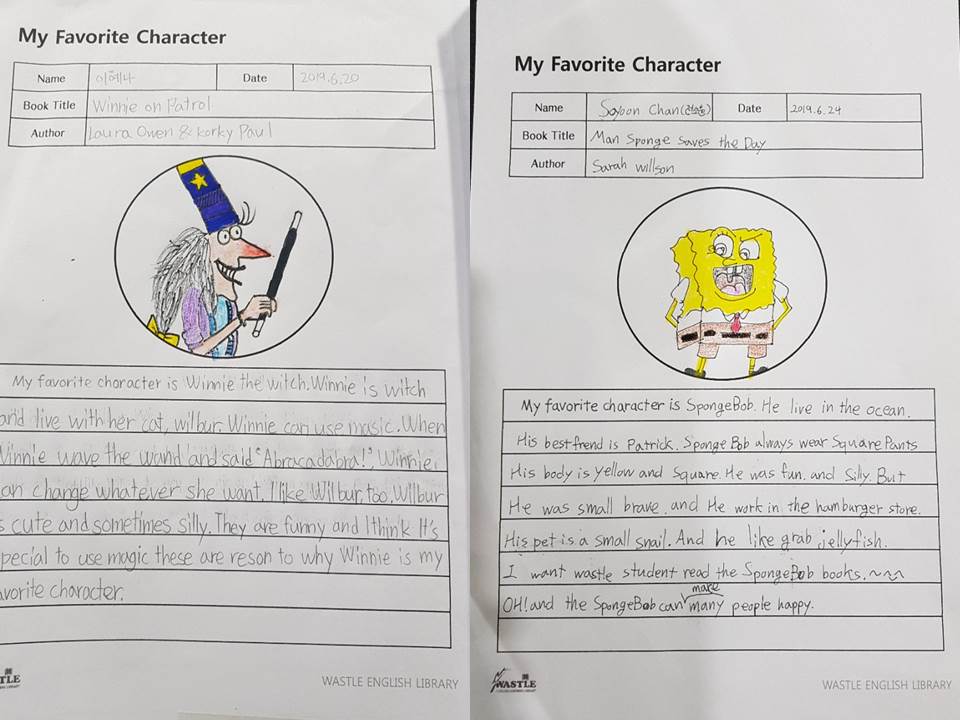 My Favorite Character
Name 이예나 Date 2019.6.20
Book Title Winnie on Patrol
Author Laura Owen & Korky Paul
My favorite character is Winnie the witch. Winnie is witch
and live with her cat, wilbur. Winnie can use masic. When
Winnie wave the wand and said "Abracadabra!", Winnie.
can change whatever she want. I like Wilbur, too. Wilbur
s cute and sometimes silly. They are funny and I think It's
pecial to use magic these are reson to why Winnie is my
avorite character.
TLE
WASTLE ENGLISH LIBRARY
My Favorite Character
Name Soyoon Chan Date 2019.6.24
Book Title Man Sponge Saves the Day
Author Sarah willson
My favorite character is SpongeBob. He live in the ocean.
His best frend is Patrick. Sponge Bob always wear Square Pants
His body is yellow and Square. He was fun. and Silly. But
He was small brave. and He work in the hamburger store.
His pet is a small snail. And he like grab jellyfish.
I want wastle student read the SpongeBob books.~~~
OH! and the SpongeBob can make many people happy.
WASTLE
WASTLE ENGLISH LIBRARY